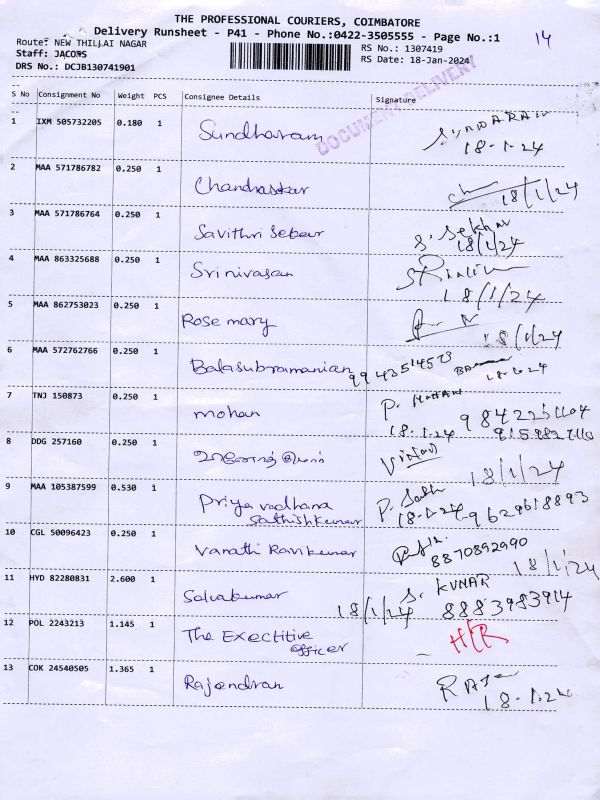 THE PROFESSIONAL COURIERS, COIMBATORE
Delivery Runsheet - P41 - Phone No.:0422-3505555 - Page No.:1
14
Route: NEW THILLAI NAGAR
RS No.: 1307419
Staff: JACOBS
RS Date: 18-Jan-2024
DRS No.: DCJB130741901
DOCUMENT DELIVERY
S No Consignment No Weight PCS Consignee Details Signature
1 IXM 505732205 0.180 1 Sundharam SUNDARAM
18-1-24
2 MAA 571786782 0.250 1 Chandraskar
18/1/24
3 MAA 571786764 0.250 1 Savithri Sekar S. Sekhar
18/1/24
4 MAA 863325688 0.250 1 Srinivasan
18/1/24
5 MAA 862753023 0.250 1 Rose mary
18/1/24
6 MAA 572762766 0.250 1 Balasubramanian 9943514513
18-1-24
7 TNJ 150873 0.250 1 mohan P. MOHAN
18-1-24
8 DDG 257160 0.250 1 Vinod
18/1/24
9 MAA 105387599 0.530 1 Priya vadhana
Sathishkumar 18-1-24 9629618893
10 CGL 50096423 0.250 1 Vanathi Ravikumar
8870892990
18/1/24
11 HYD 82280831 2.600 1 Selvakumar S. KUNAR
18/1/24 8883983914
12 POL 2243213 1.145 1 The Exectitive
officer
13 COK 24540505 1.365 1 Rajendran
18-1-24